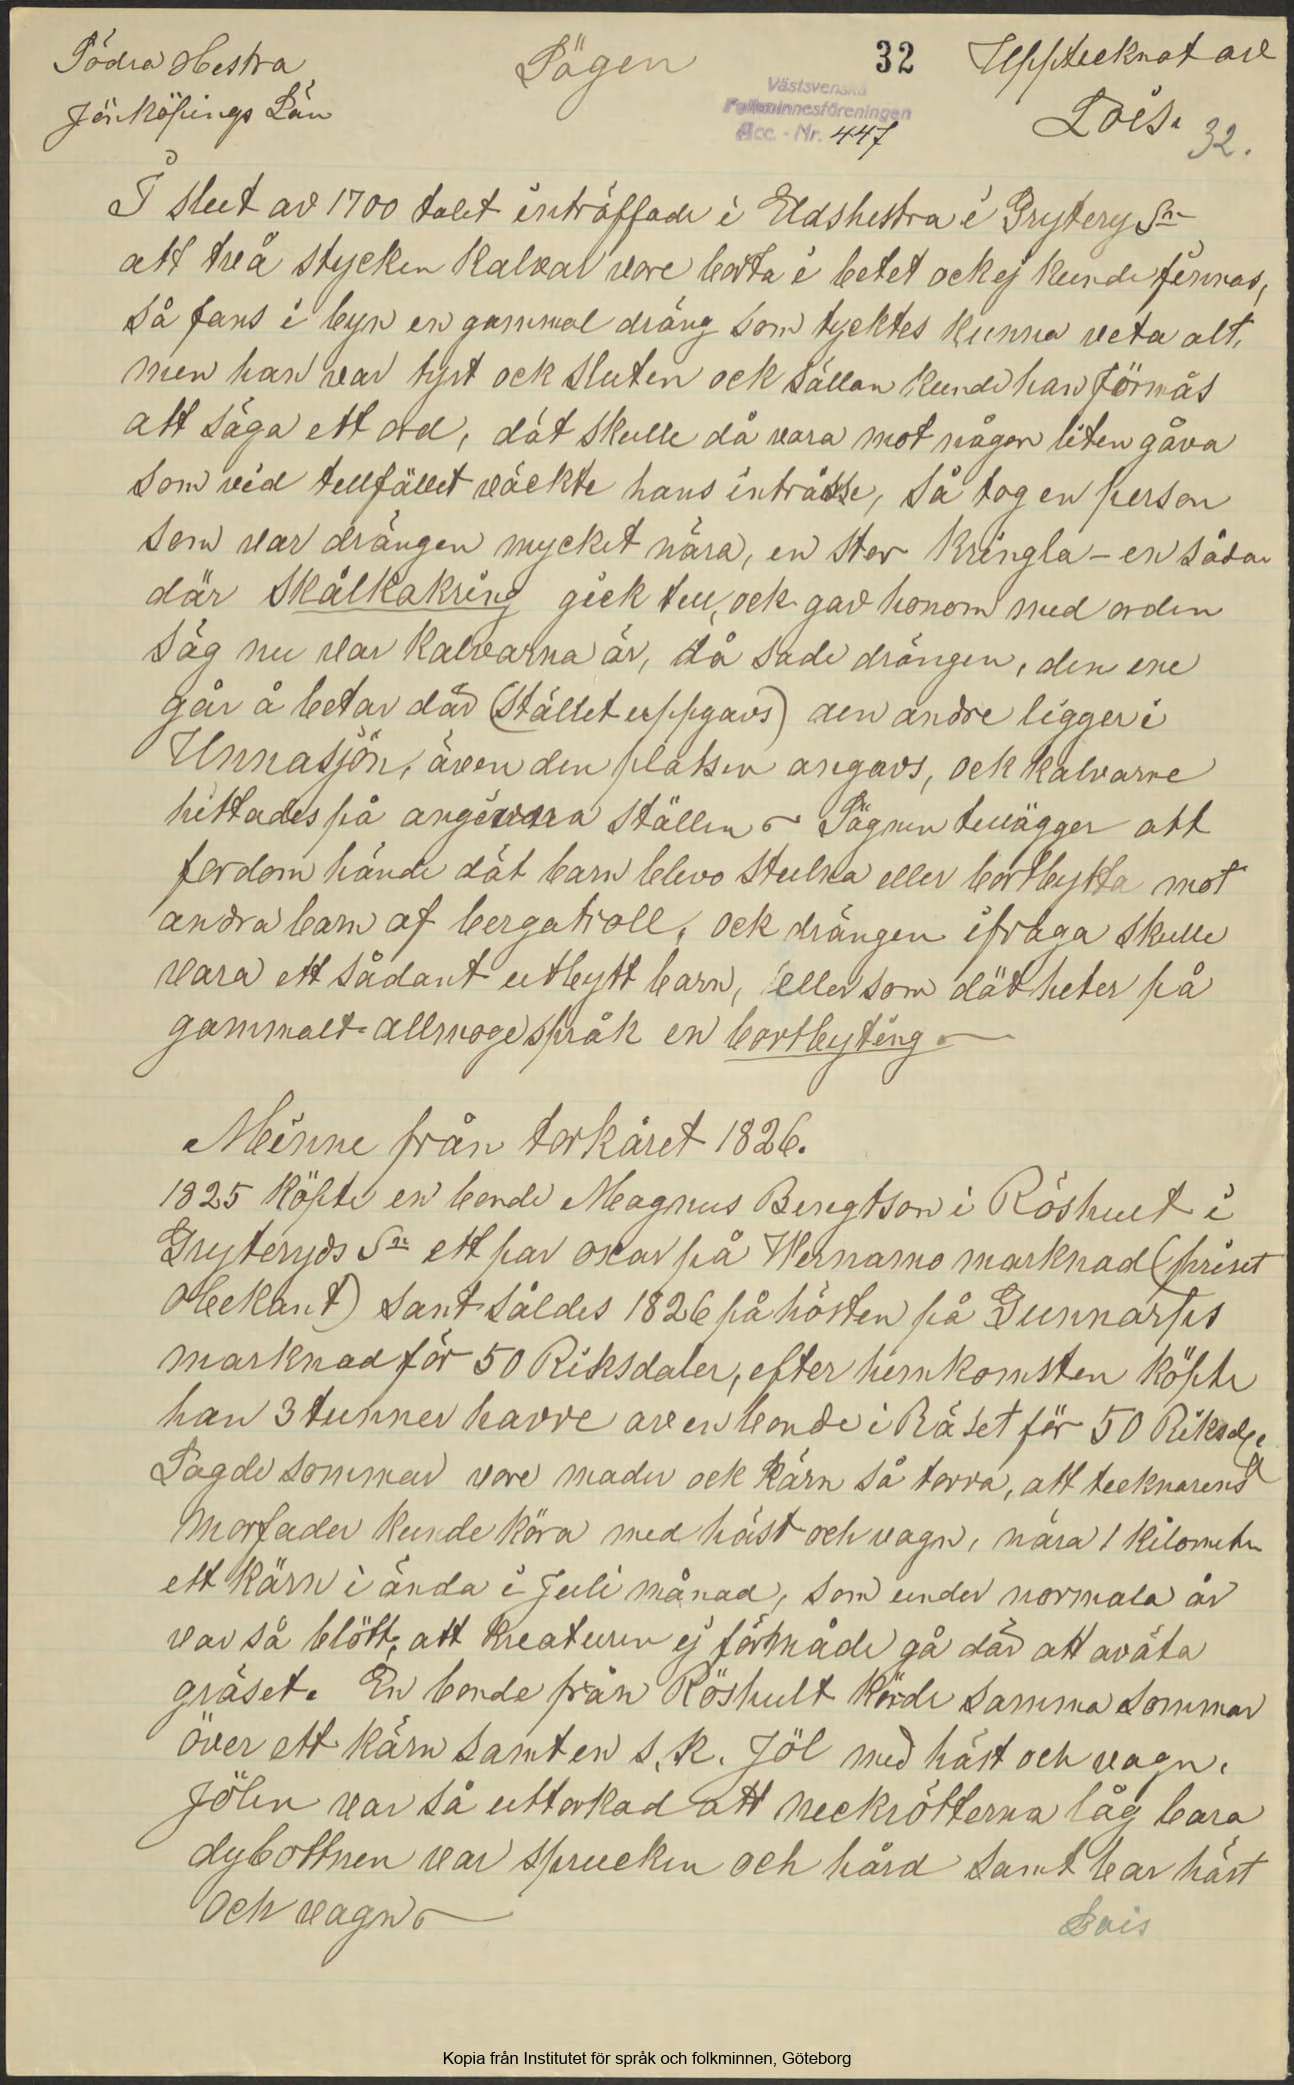 Södra Hestra
Jönköpings Län
Sägen
32
Upptecknat av
Lois.
32.
Västsvenska
Folkminnesföreningen
Acc. - Nr. 447
I slut av 1700 talet inträffade i Eldshestra i Grytery Sn
att två stycken Kalvar vore borta i betet ock ej kunde finnas,
så fans i byn en gammal dräng som tycktes kunna veta alt,
men han var tyst ock sluten ock sällan kunde han förmås
att säga ett ord, dät skulle då vara mot någon liten gåva
som vid tillfället väckte hans inträsse, så tog en person
som var drängen mycket nära, en stor Kringla – en sådan
där skålkakring gick till, ock gav honom med orden
säg nu var Kalvarna är, då sade drängen, den ene
går å betar där (stället uppgavs) den andre ligger i
Unnasjön, även den platsen angavs, ock kalvarne
hittades på angivna ställen – Sägnen tillägger att
fordom hände dät barn blevo stulna eller bortbytta mot
andra barn af bergatroll, ock drängen ifråga skulle
vara ett sådant utbytt barn, eller som dät heter på
gammalt allmogespråk en bortbyting –
Minne från torkåret 1826.
1825 Köpte en bonde Magnus Bengtson i Röshult i
Gryteryds Sn ett par oxar på Wernamo marknad (priset
obekant) samt såldes 1826 på hösten på Gunnarps
marknad för 50 Riksdaler, efter hemkomsten köpte
han 3 tunnor havre av en bonde i Råset för 50 Riksdlr
Sagde sommar vore mader ock Kärn så torra, att tecknarens
morfader kunde köra med häst och vagn, nära 1 Kilometer
ett Kärn i ända i Juli månad, som under normala år
var så blött, att Kreaturen ej förmådde gå där att aväta
gräset. En bonde från Röshult Körde samma sommar
över ett kärn samt en s.k. Jöl med häst och vagn.
Jölen var så uttorkad att neckrötterna låg bara
dybottnen var sprucken och hård samt bar häst
och vagn –
Lois
Kopia från Institutet för språk och folkminnen, Göteborg